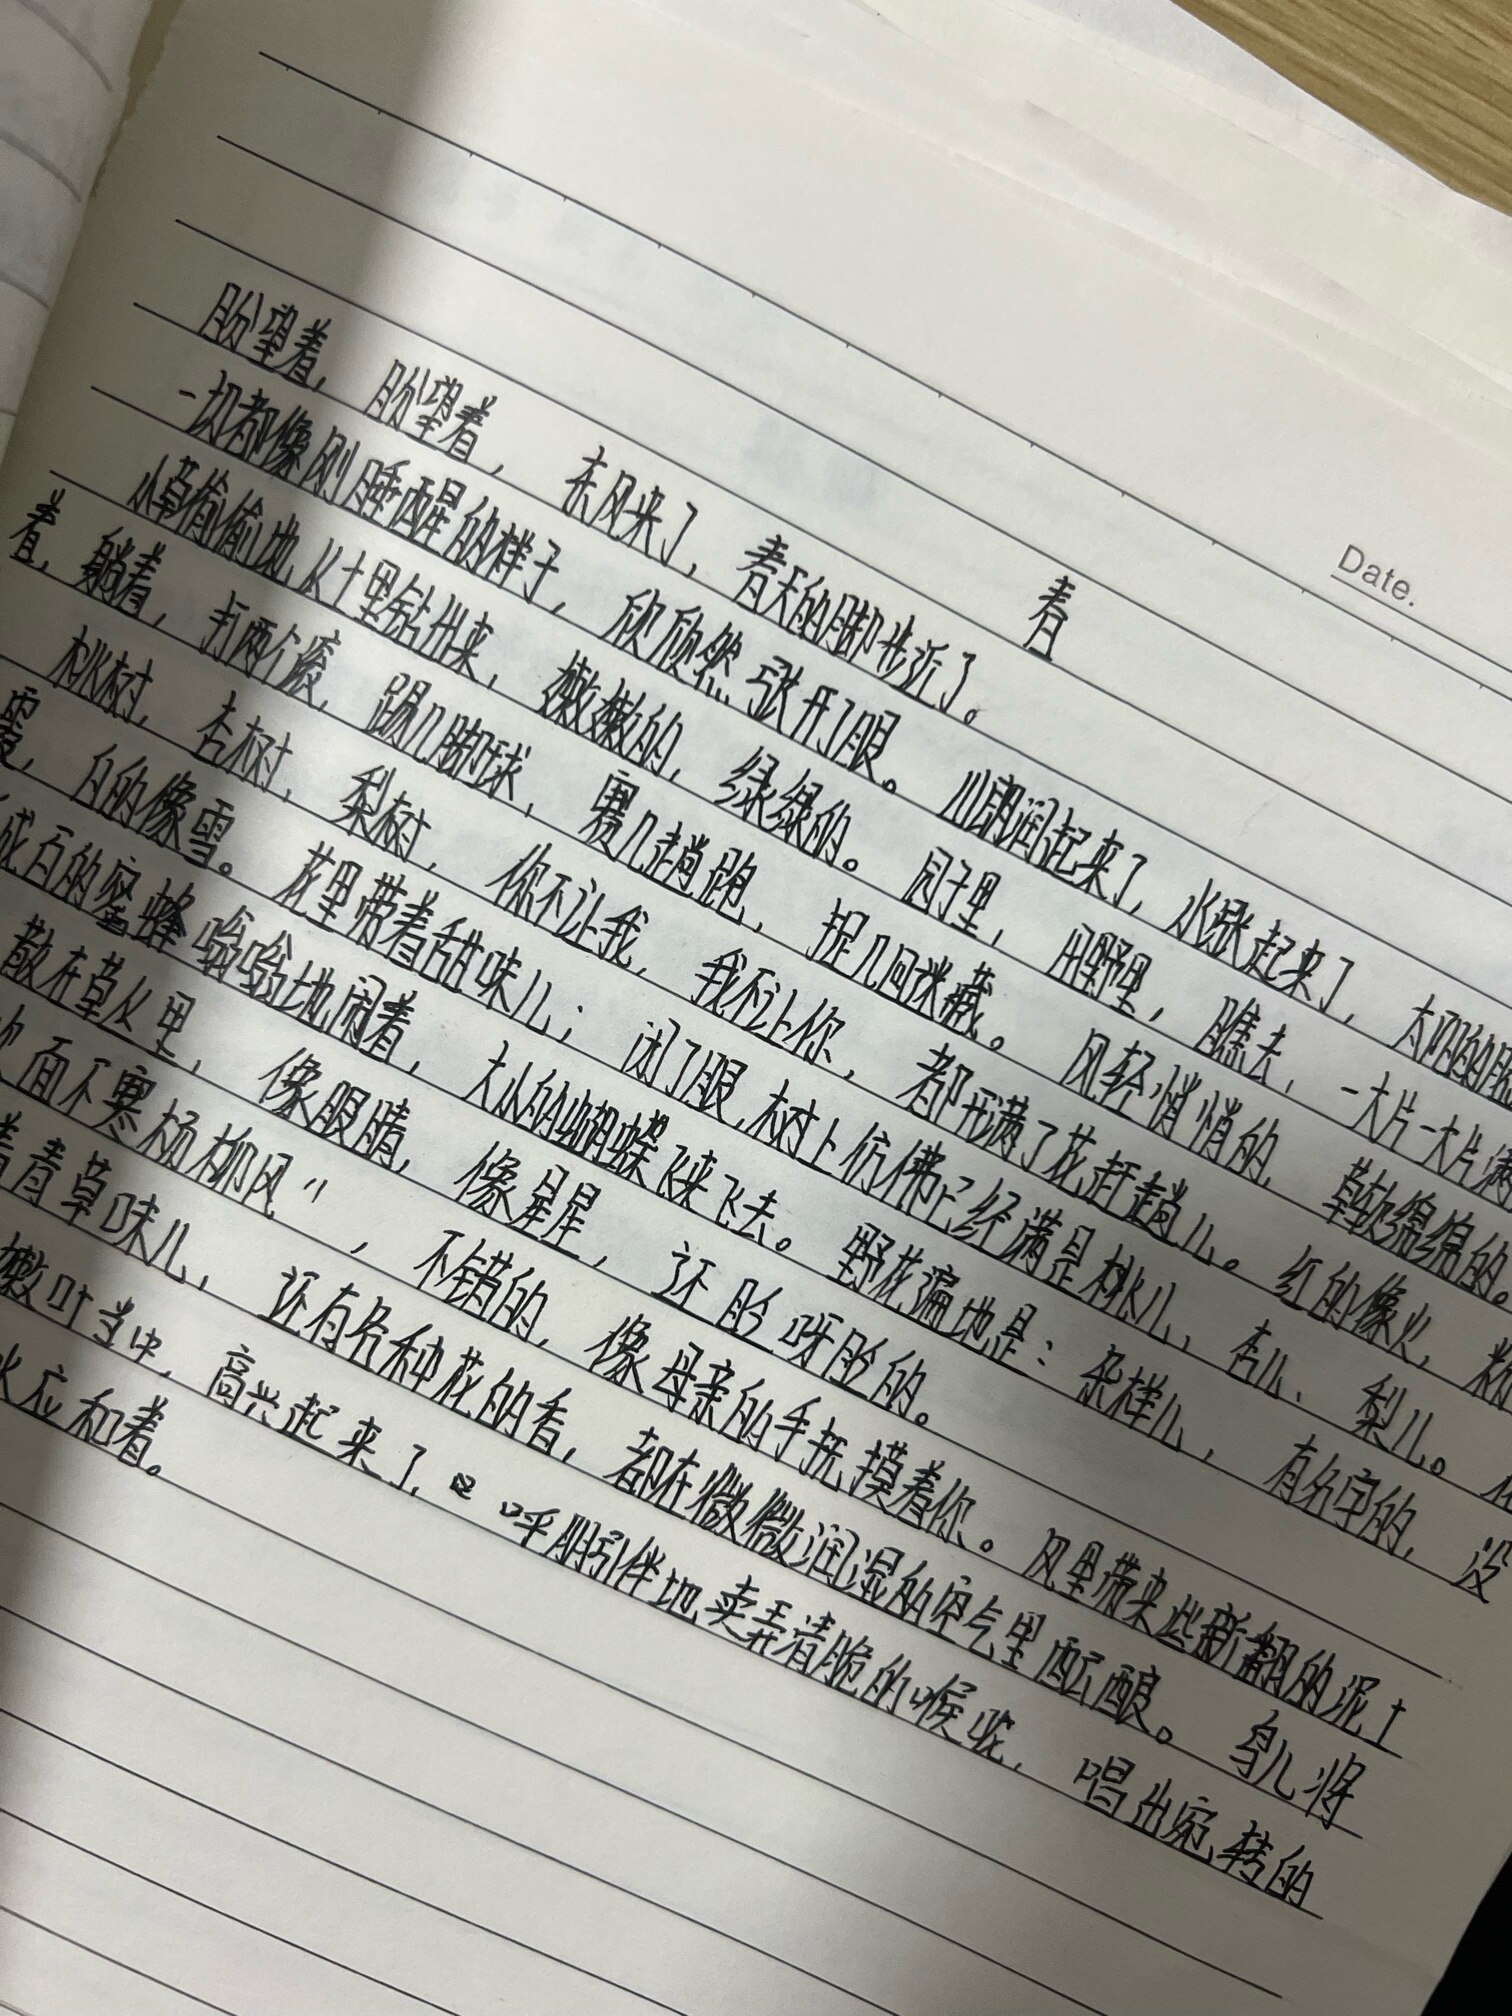 Date.
春
盼望着，盼望着，东风来了，春天的脚步近了。
一切都像刚睡醒的样子，欣欣然张开了眼。山朗润起来了，水涨起来了，太阳的脸
小草偷偷地从土里钻出来，嫩嫩的，绿绿的。园子里，田野里，瞧去，一大片一大片满
着，躺着，打两个滚，踢几脚球，赛几趟跑，捉几回迷藏。风轻悄悄的，草软绵绵的。
桃树，杏树，梨树，你不让我，我不让你，都开满了花赶趟儿。红的像火，粉
霞，白的像雪。花里带着甜味儿；闭了眼，树上仿佛已经满是桃儿、杏儿、梨儿。
成百的蜜蜂嗡嗡地闹着，大小的蝴蝶飞来飞去。野花遍地是：杂样儿，有名字的，没
散在草丛里，像眼睛，像星星，还眨呀眨的。
面不寒杨柳风”，不错的，像母亲的手抚摸着你。风里带来些新翻的泥土
着青草味儿，还有各种花的香，都在微微润湿的空气里酝酿。鸟儿将
嫩叶当中，高兴起来了，呼朋引伴地卖弄清脆的喉咙，唱出宛转的
应和着。